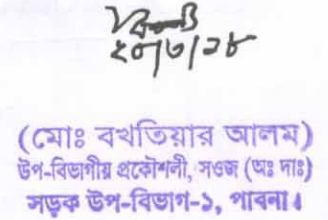 ২০/৩/১৮
(মোঃ বখতিয়ার আলম)
উপ-বিভাগীয় প্রকৌশলী, সওজ (অঃ দাঃ)
সড়ক উপ-বিভাগ-১, পাবনা।